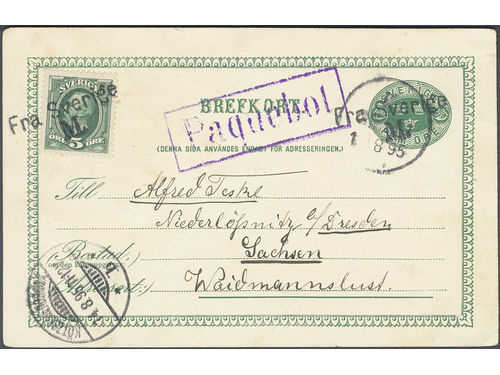 SVERIGE
5 ÖRE
Fra Sverige
M.
BREFKORT.
Paquebot
Fra Sverige
M.
1 8 95
(DENNA SIDA ANVÄNDES ENDAST FÖR ADRESSERINGEN.)
Till Alfred Teske
Niederlößnitz a/Dresden
Sachsen
(Bostad:
Waidmannslust.